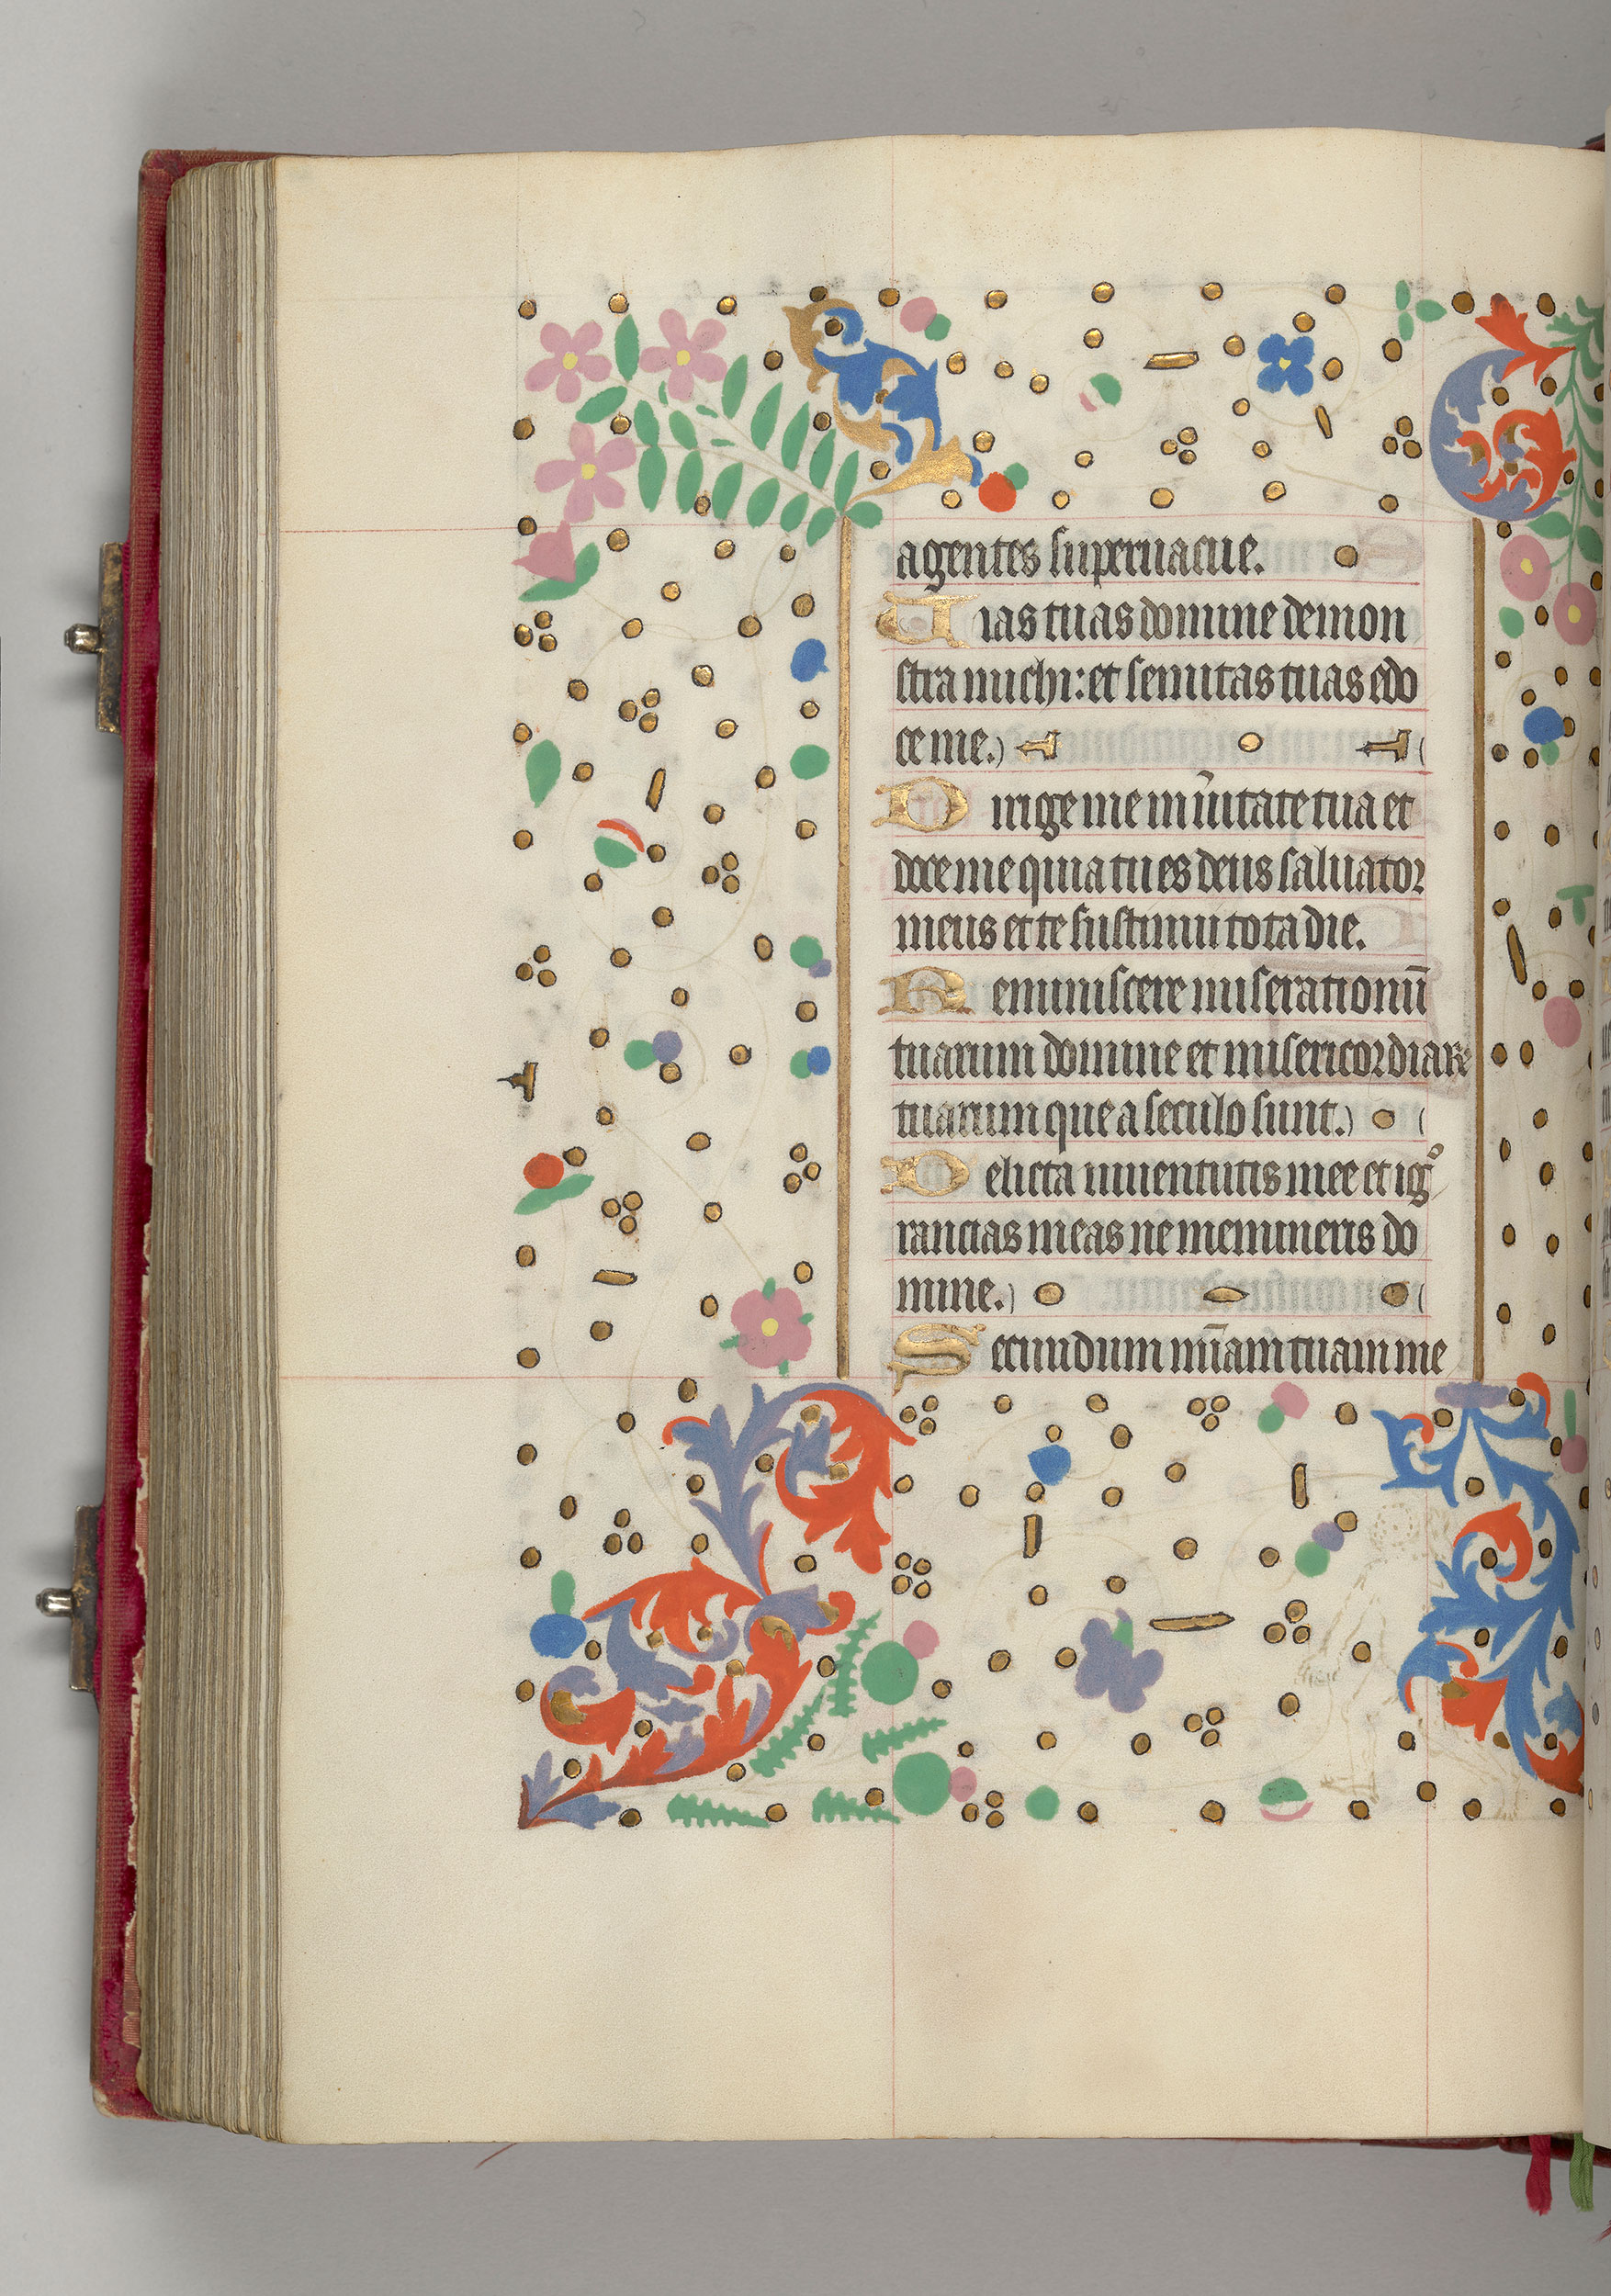 agentes superuacue.
Uias tuas domine demon
stra michi: et semitas tuas edo
ce me.
Dirige me in ũitate tua et
doce me quia tu es deus saluator
meus et te sustinui tota die.
Reminiscere miserationũ
tuarum domine et misericordiare
tuarum que a seculo sunt.
Delicta iuuentutis mee et igº
rancias meas ne memineris do
mine.
Secundum mĩam tuam me